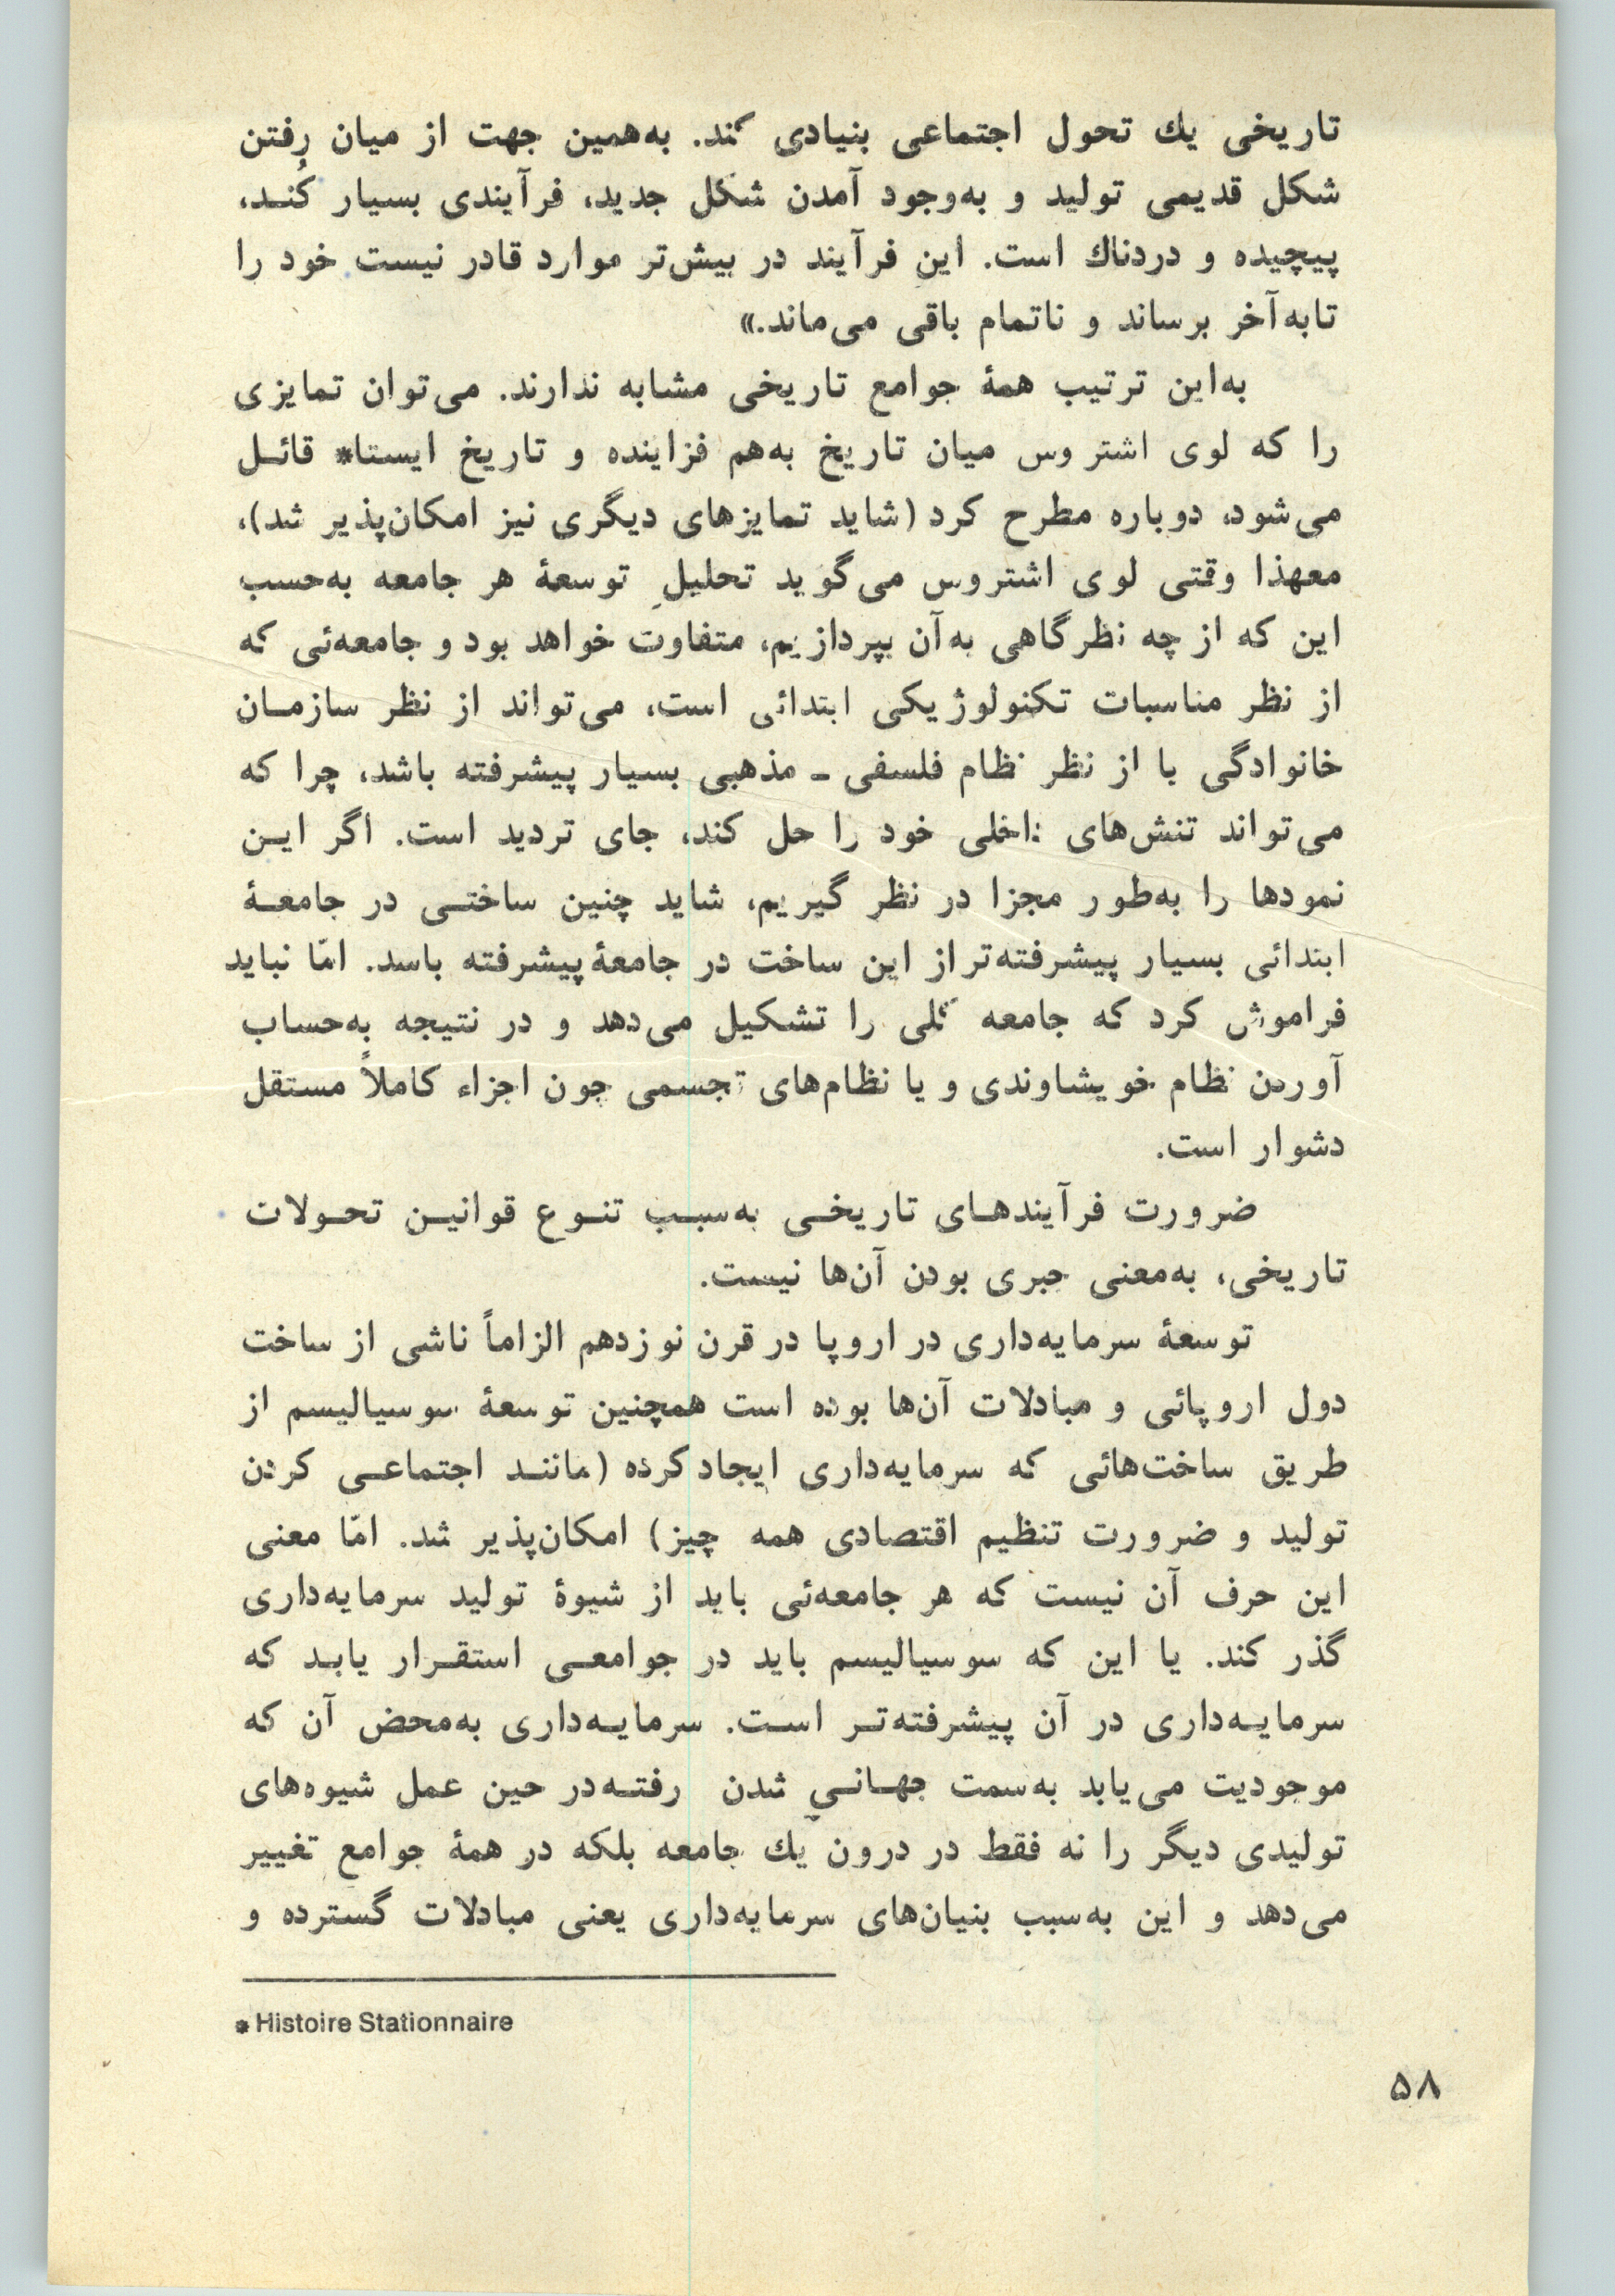 تاریخی یك تحول اجتماعی بنیادی کند. به‌همین جهت از میان رفتن
شکل قدیمی تولید و به‌وجود آمدن شکل جدید، فرآیندی بسیار کُنـد،
پیچیده و دردناك است. این فرآیند در بیش‌تر موارد قادر نیست خود را
تابه‌آخر برساند و ناتمام باقی می‌ماند.»
به‌این ترتیب همهٔ جوامع تاریخی مشابه ندارند. می‌توان تمایزی
را که لوی اشتروس میان تاریخ به‌هم فزاینده و تاریخ ایستا* قائـل
می‌شود، دوباره مطرح کرد (شاید تمایزهای دیگری نیز امکان‌پذیر شد)،
معهذا وقتی لوی اشتروس می‌گوید تحلیلِ توسعهٔ هر جامعه به‌حسب
این که از چه نظرگاهی به‌آن بپردازیم، متفاوت خواهد بود و جامعه‌ئی که
از نظر مناسبات تکنولوژیکی ابتدائی است، می‌تواند از نظر سازمـان
خانوادگی با از نظر نظام فلسفی ـ مذهبی بسیار پیشرفته باشد، چرا که
می‌تواند تنش‌های داخلی خود را حل کند، جای تردید است. اگر ایـن
نمودها را به‌طور مجزا در نظر گیریم، شاید چنین ساختـی در جامعـهٔ
ابتدائی بسیار پیشرفته‌تر از این ساخت در جامعهٔ پیشرفته باسد. امّا نباید
فراموش کرد که جامعه کلی را تشکیل می‌دهد و در نتیجه به‌حساب
آوردن نظام خویشاوندی و یا نظام‌های تجسمی جون اجزاء کاملاً مستقل
دشوار است.
ضرورت فرآیندهـای تاریخـی به‌سبـب تنـوع قوانیـن تحـولات
تاریخی، به‌معنی جبری بودن آن‌ها نیست.
توسعهٔ سرمایه‌داری در اروپا در قرن نوزدهم الزاماً ناشی از ساخت
دول اروپائی و مبادلات آن‌ها بوده است همچنین توسعهٔ سوسیالیسم از
طریق ساخت‌هائی که سرمایه‌داری ایجاد کرده (ماننـد اجتماعـی کردن
تولید و ضرورت تنظیم اقتصادی همه چیز) امکان‌پذیر شد. امّا معنی
این حرف آن نیست که هر جامعه‌ئی باید از شیوهٔ تولید سرمایه‌داری
گذر کند. یا این که سوسیالیسم باید در جوامعـی استقـرار یابـد که
سرمایـه‌داری در آن پیشرفته‌تـر اسـت. سرمایـه‌داری به‌محض آن که
موجودیت می‌یابد به‌سمت جهـانـیِ شدن رفتـه‌در حین عمل شیوه‌های
تولیدی دیگر را نه فقط در درون یك جامعه بلکه در همهٔ جوامع تغییر
می‌دهد و این به‌سبب بنیان‌های سرمایه‌داری یعنی مبادلات گسترده و
* Histoire Stationnaire
۵۸